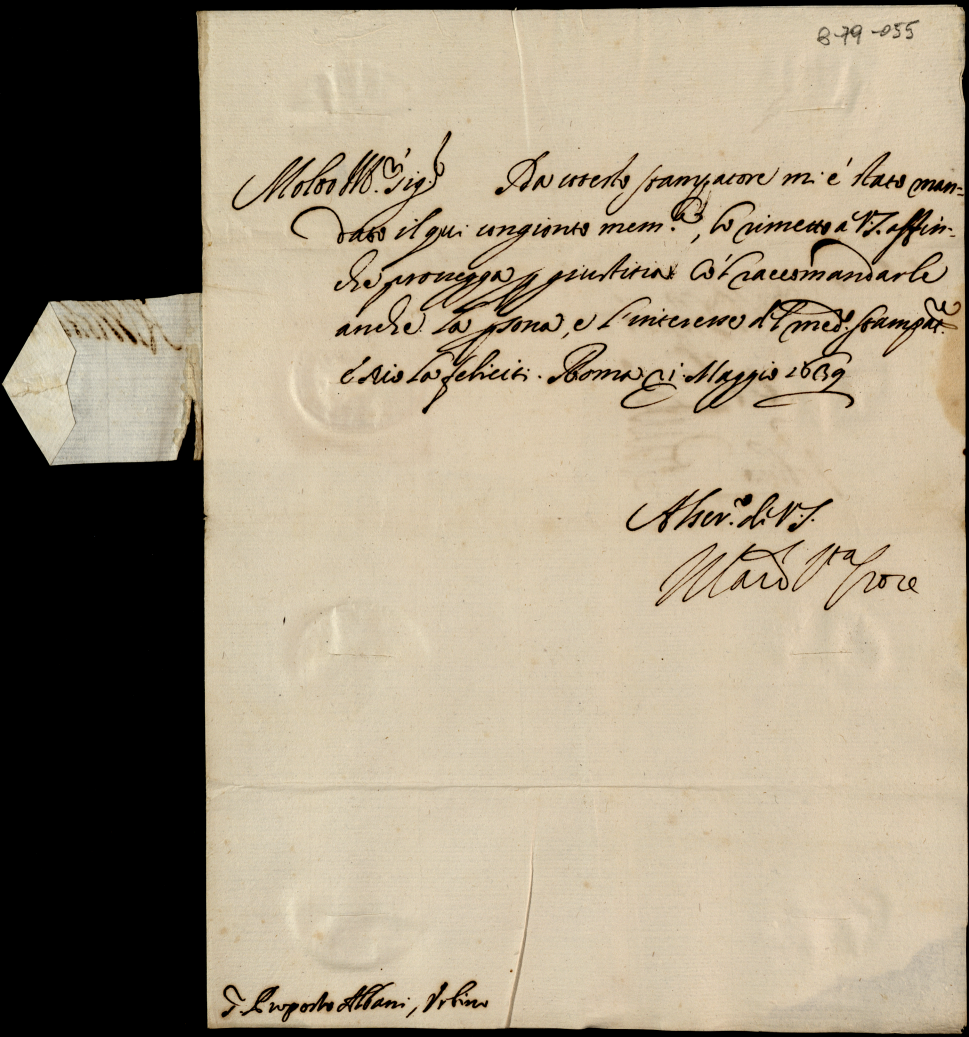 8-79-055
Molto Ill.re Sig.re Da cotesto stampatore mi è stato man-
dato il qui congionto mem.le, lo rimetto à V.S. affin-
che prouegga p giustitia co'l raccomandarle
anche la psona, e l'interesse d'l med.º stampat.re
e Dio la feliciti. Roma 21 Maggio 1639
Al ser.º di V.S.
Mar.º S.ta Croce
S. Proposto Albani, Vrbino